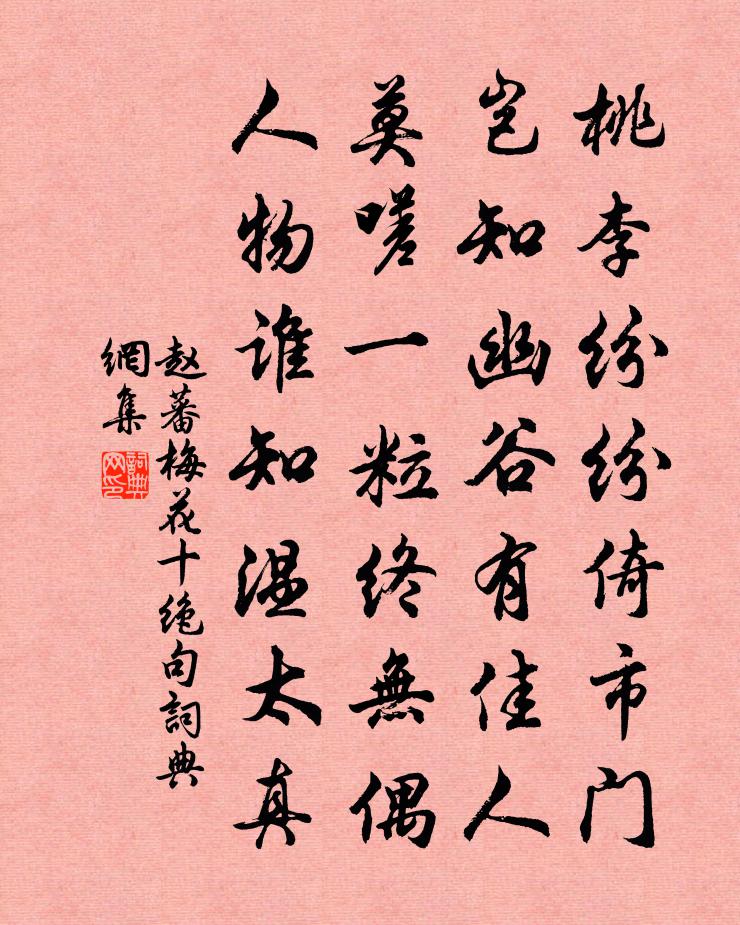 桃李紛紛倚市門
岂知幽谷有佳人
莫嗟一粒終無偶
人物谁知温太真
赵蕃梅花十绝句詞典
網集
詞典
网印